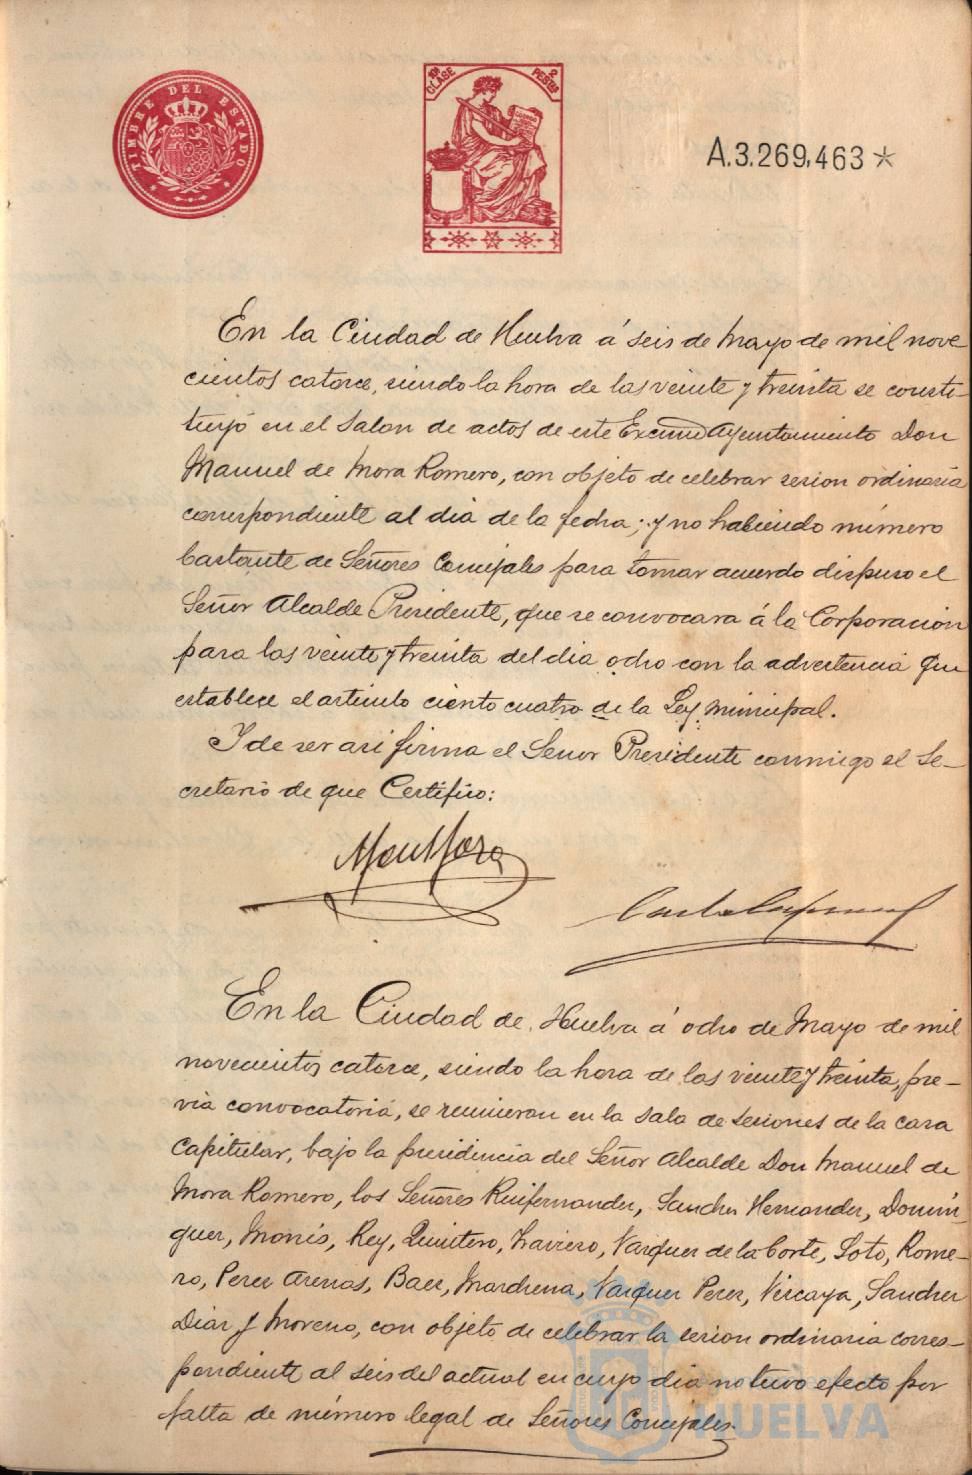 TIMBRE DEL ESTADO
10ª CLASE 2 PESETAS
A.3.269.463 *
En la Ciudad de Huelva á seis de Mayo de mil nove
cientos catorce, siendo la hora de las veinte y treinta se consti-
tuyó en el Salon de actos de este Excmo Ayuntamiento Don
Manuel de Mora Romero, con objeto de celebrar sesion ordinaria
correspondiente al dia de la fecha; y no habiendo número
bastante de Señores Concejales para tomar acuerdo dispuso el
Señor Alcalde Presidente, que se convocara á la Corporacion
para las veinte y treinta del dia ocho con la advertencia que
establece el articulo ciento cuatro de la Ley municipal.
Y de ser asi firma el Señor Presidente conmigo el Se-
cretario de que Certifico:
Man Mora
En la Ciudad de Huelva á ocho de Mayo de mil
novecientos catorce, siendo la hora de las veinte y treinta, pre-
via convocatoria, se reunieron en la sala de sesiones de la casa
Capitular, bajo la presidencia del Señor Alcalde Don Manuel de
Mora Romero, los Señores Ruifernandez, Sanchez Hernandez, Domin
guez, Monís, Rey, Quintero, Traviero, Vazquez de la Corte, Soto, Rome-
ro, Perez Arenas, Baez, Marchena, Vazquez Perez, Vizcaya, Sanchez
Diaz y Moreno, con objeto de celebrar la sesion ordinaria corres-
pondiente al seis del actual en cuyo dia no tuvo efecto por
falta de número legal de Señores Concejales.
HUELVA